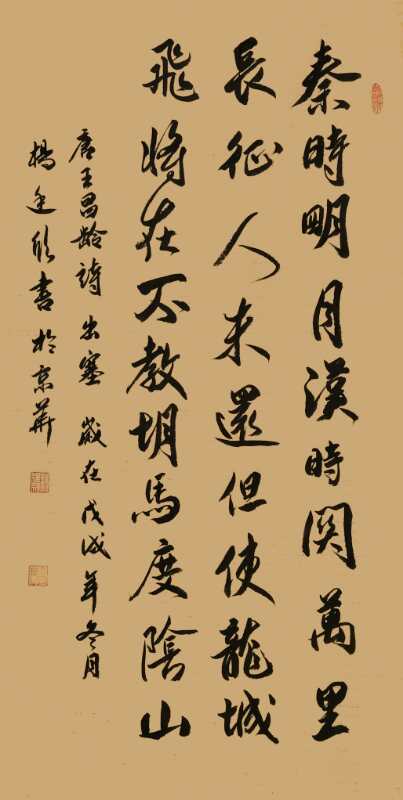 秦時明月漢時関萬里
長征人未還但使龍城
飛將在不教胡馬度陰山
唐王昌龄詩 出塞 歲在戊戌年冬月
楊欣書於京華